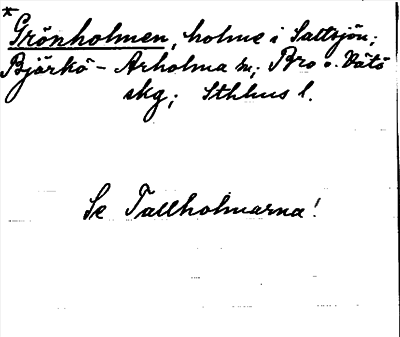 * Grönholmen, holme i Saltsjön;
Björkö - Arholma sn; Bro o. Vätö
skg; Sthlms l.
Se Tallholmarna!